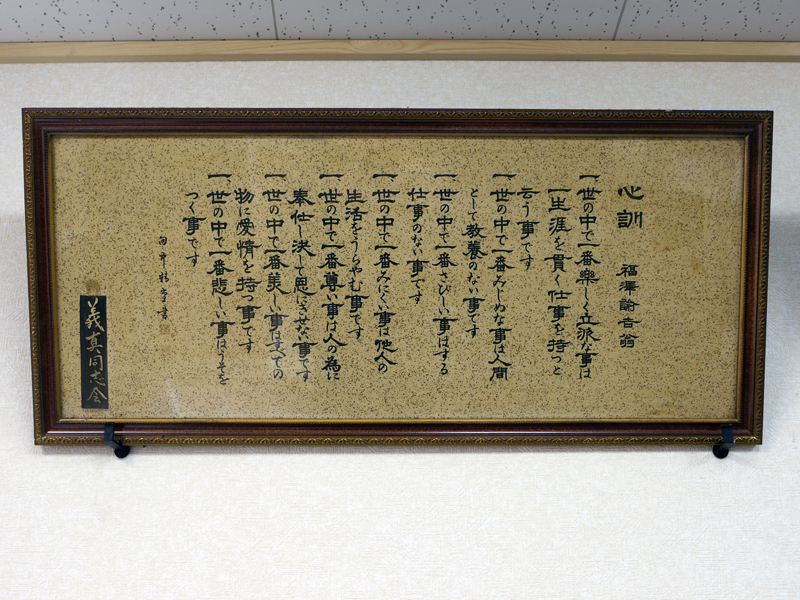 心訓 福澤諭吉翁
一、世の中で一番楽しく立派な事は
一生涯を貫く仕事を持つと
云う事です
一、世の中で一番みじめな事は人間
として教養のない事です
一、世の中で一番さびしい事はする
仕事のない事です
一、世の中で一番みにくい事は他人の
生活をうらやむ事です
一、世の中で一番尊い事は人の為に
奉仕し決して恩にきせない事です
一、世の中で一番美しい事はすべての
物に愛情を持つ事です
一、世の中で一番悲しい事はうそを
つく事です
義真同志会